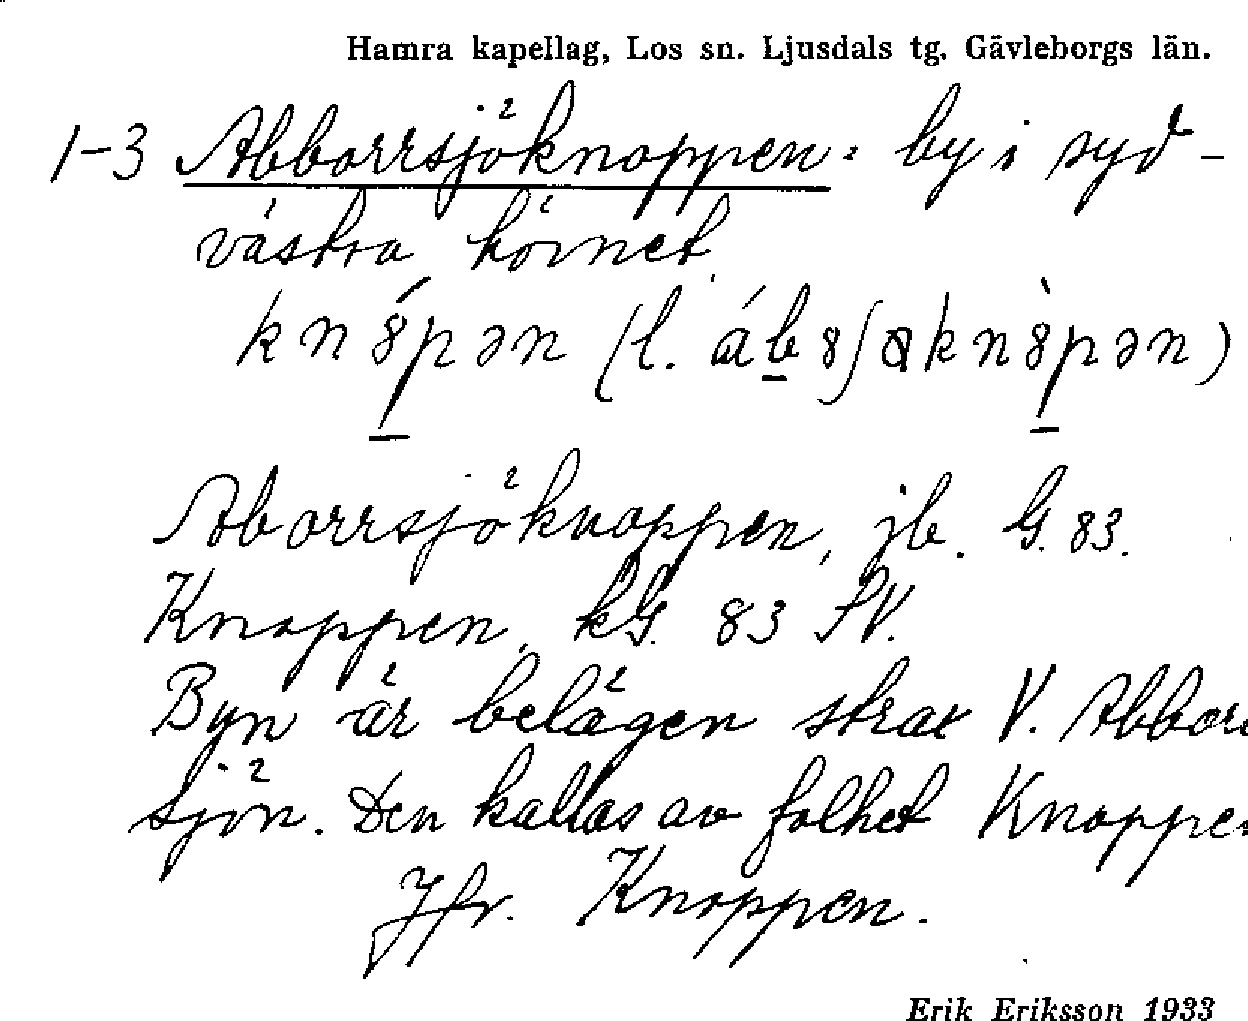 Hamra kapellag, Los sn. Ljusdals tg. Gävleborgs län.
1-3 Abborrsjöknoppen: by i syd-
västra hörnet.
kn8́pən (l. áb8ʃəkn8̀pən)
Aborrsjöknoppen, jb. G. 83.
Knoppen, kG. 83 SV.
Byn är belägen strax V. Abborr
sjön. Den kallas av folket Knoppen
Jfr. Knoppen.
Erik Eriksson 1933